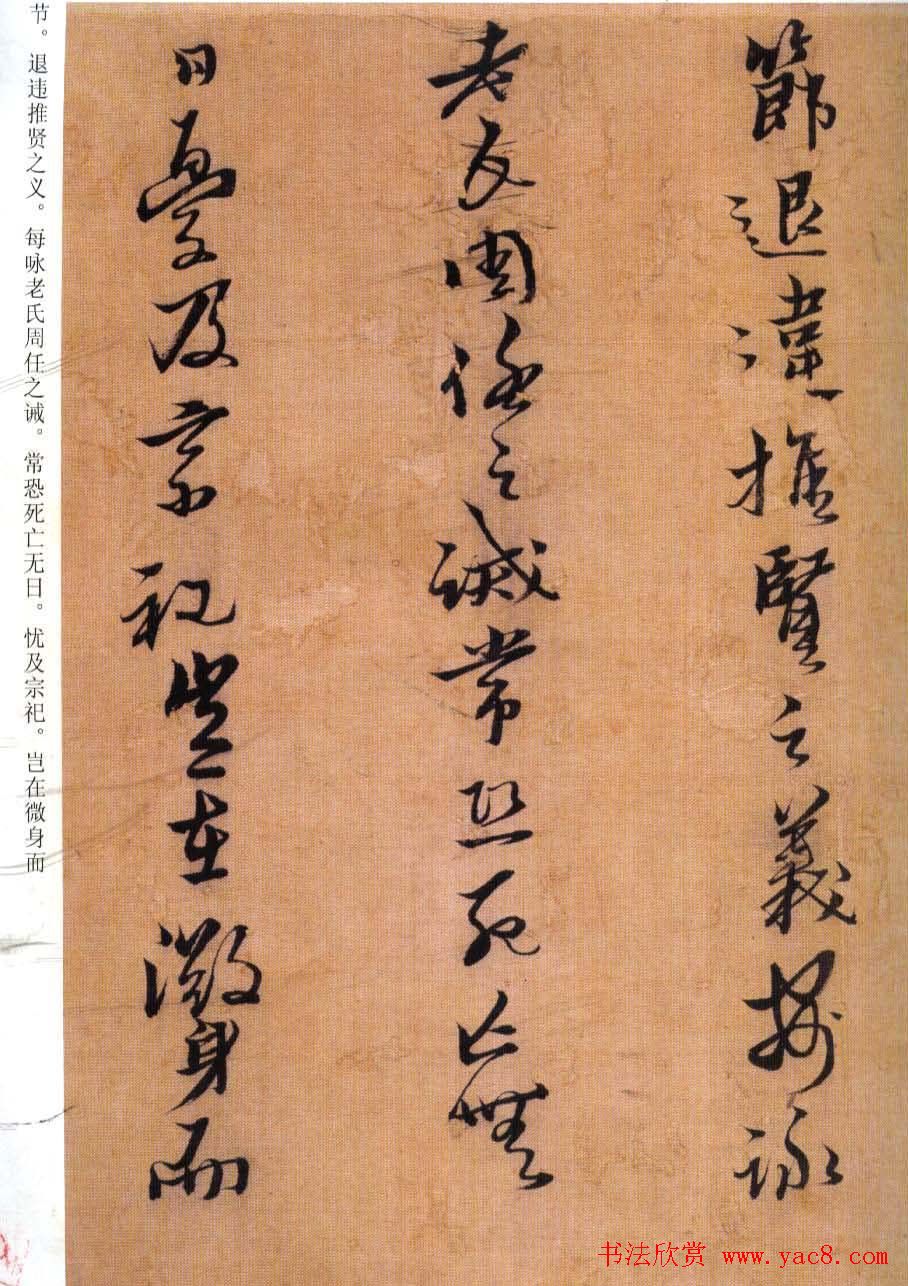 節退違推賢之義每詠
老氏周任之誡常恐死亡無
日憂及宗祀豈在微身而
节。退违推贤之义。每咏老氏周任之诫。常恐死亡无日。忧及宗祀。岂在微身而
书法欣赏 www.yac8.com